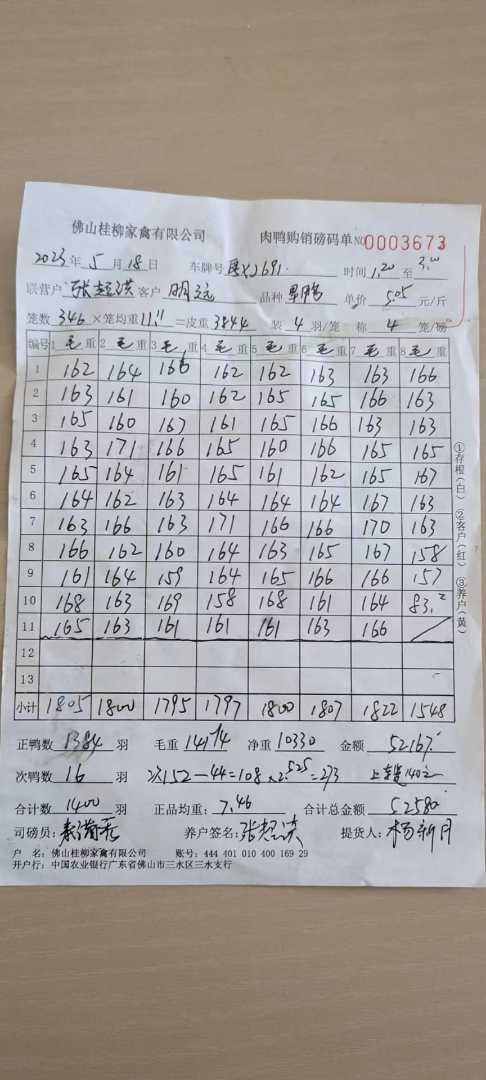 佛山桂柳家禽有限公司 肉鸭购销磅码单 NO 0003673
2023年 5月18日 车牌号 X2691 时间 1.20 至 3.00
联营户 张超洪 客户 明 品种 单价 5.05 元/斤
笼数 346 ×笼均重 11.11 =皮重 3844 装 4 羽/笼 称 4 笼/磅
编号 1 毛 重 2 毛 重 3 毛 重 4 毛 重 5 毛 重 6 毛 重 7 毛 重 8 毛 重
1 162 164 166 162 162 163 163 166
2 163 161 160 162 165 165 166 163
3 165 160 167 161 165 166 163 163
4 163 171 166 165 160 166 165 165
5 165 164 161 165 161 162 165 167
6 164 162 163 164 164 164 167 163
7 163 166 163 171 166 166 170 163
8 166 162 160 164 163 165 167 158
9 161 164 159 164 165 166 166 157
10 168 163 169 158 168 161 164 83.2
11 165 163 161 161 161 163 166
12
13
小计 1805 1800 1795 1797 1800 1807 1822 1548
①存根(白) ②客户(红) ③养户(黄)
正鸭数 1384 羽 毛重 14174 净重 10330 金额 52167
次鸭数 16 羽 152-44=108 × 2.525=273 140
合计数 1400 羽 正品均重: 7.46 合计总金额 52580
司磅员: 养户签名: 张超洪 提货人: 杨新月
户 名: 佛山桂柳家禽有限公司 账号: 444 401 010 400 169 29
开户行: 中国农业银行广东省佛山市三水区三水支行